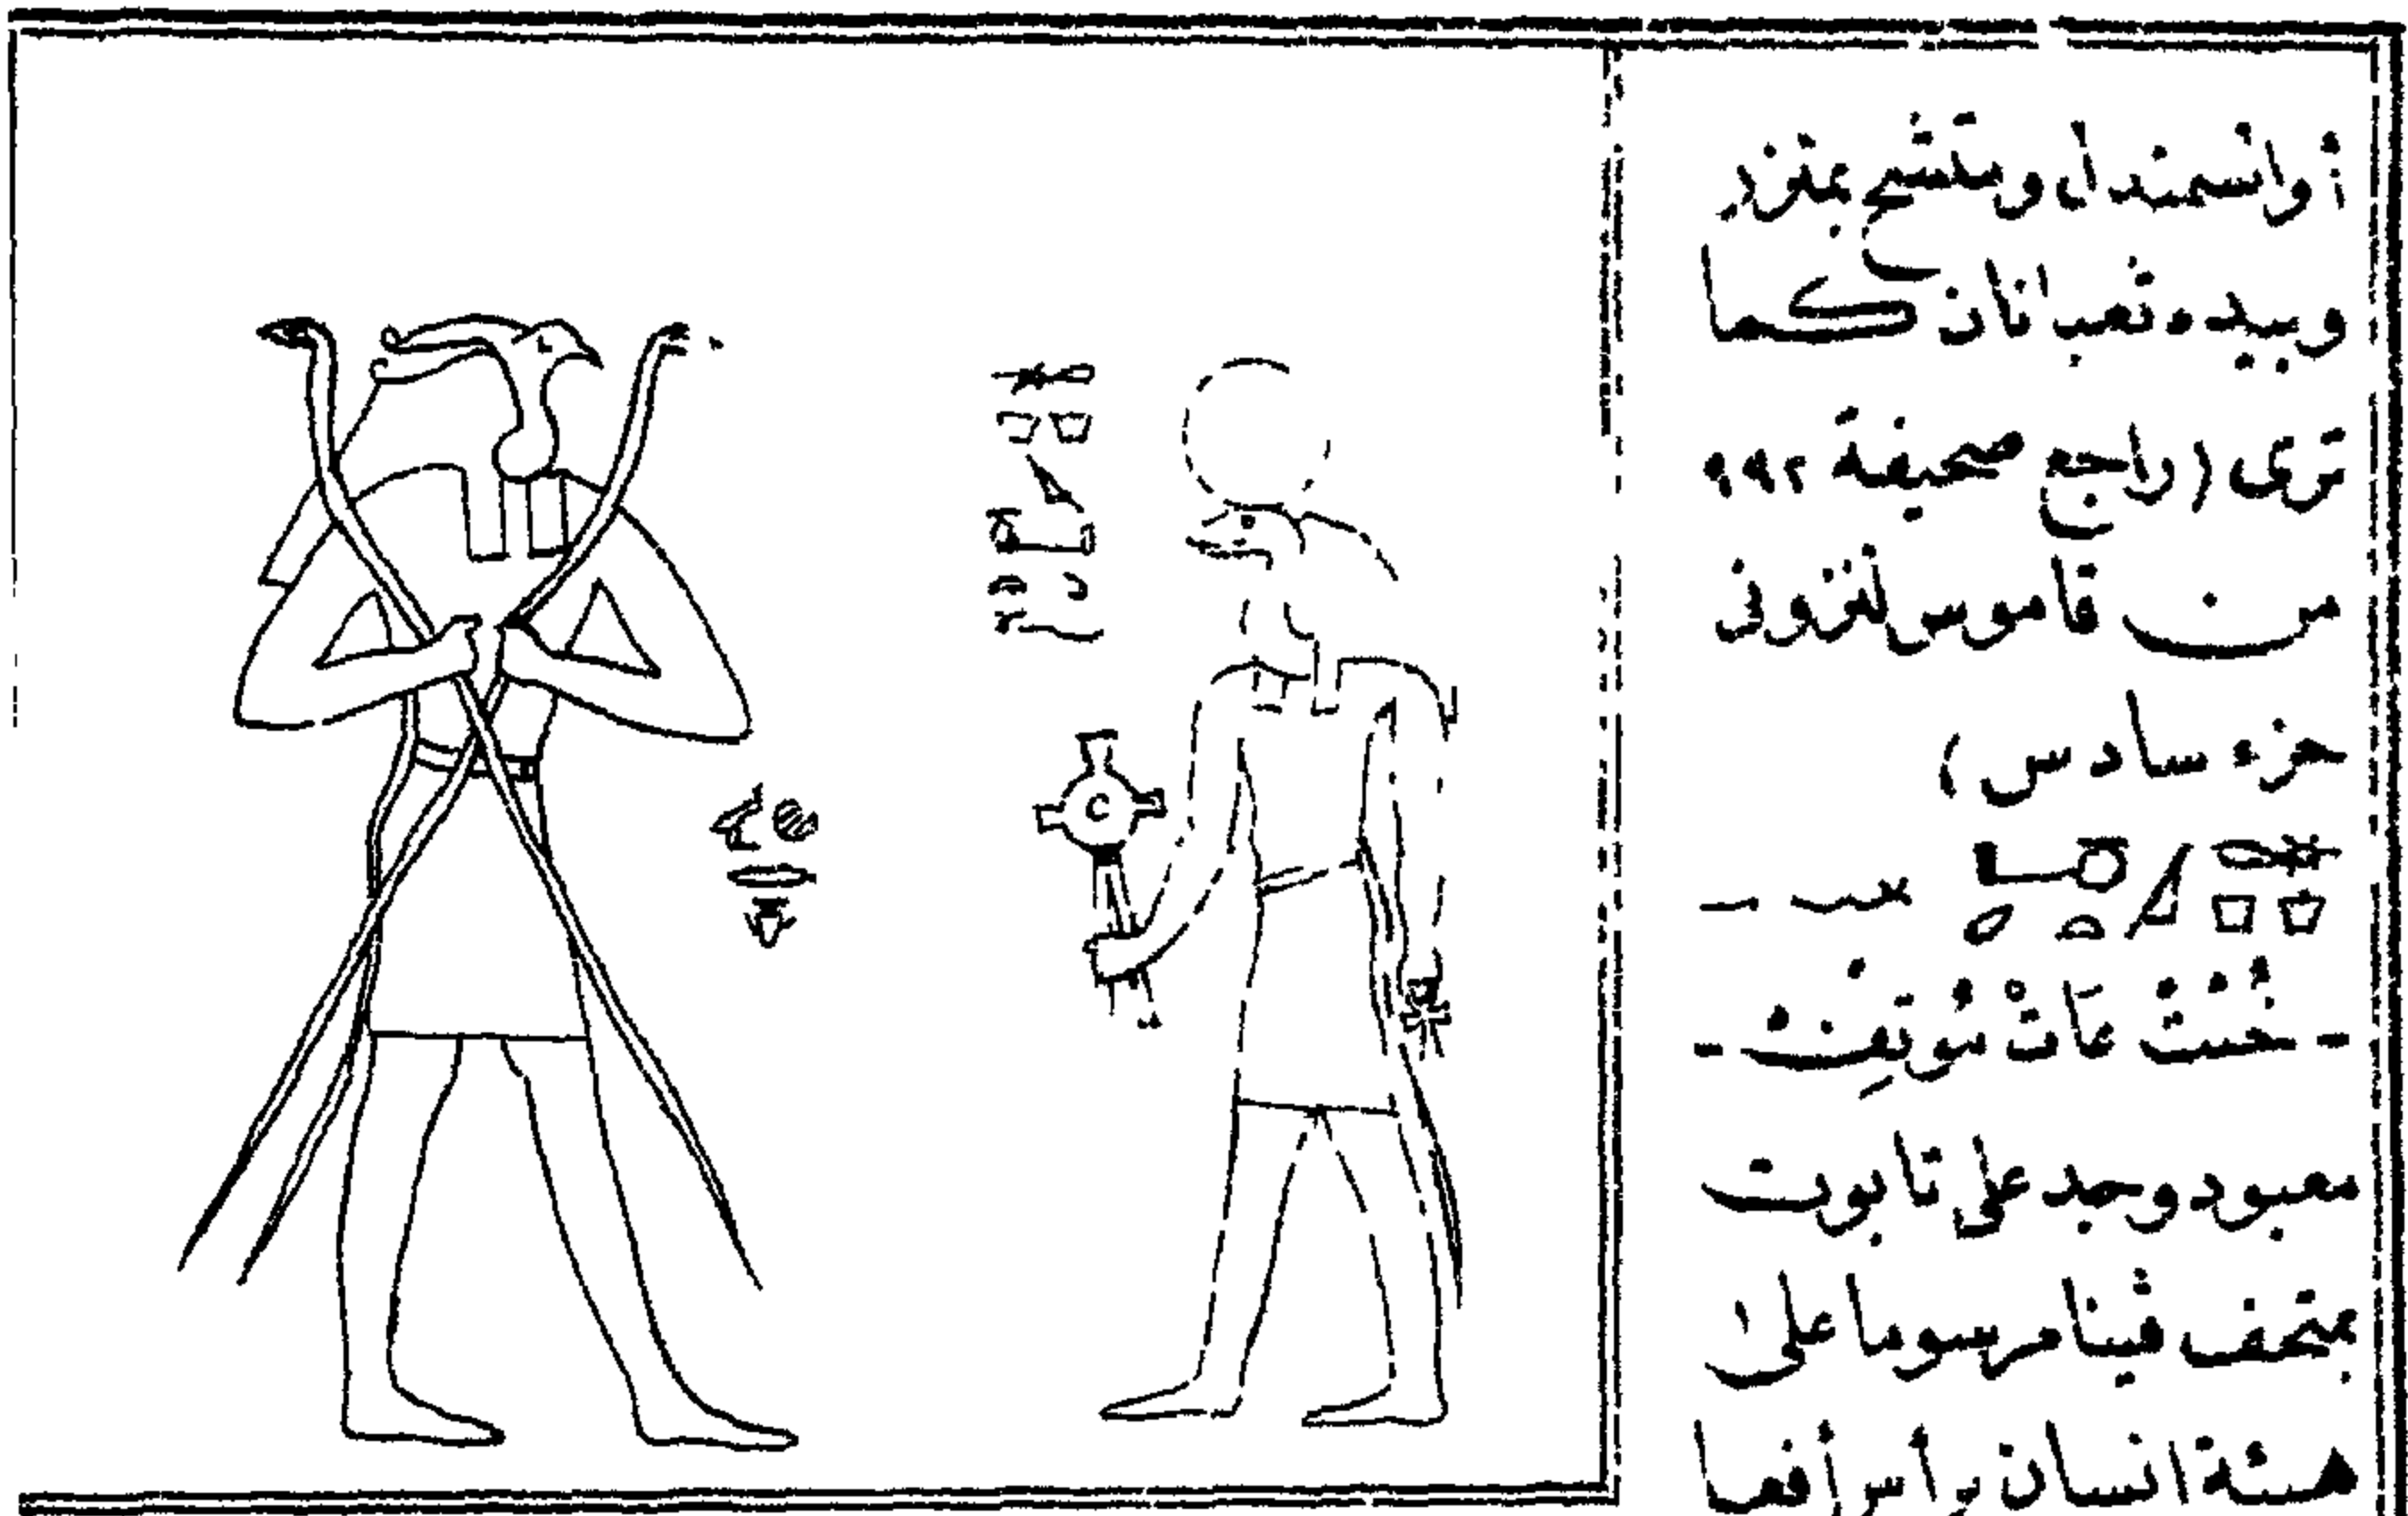 أو انسمندل ومتشح بمئزر
وبيده ثعبانان كما
ترى (راجع صحيفة ٩٩٢
من قاموس لنزونى
جزء سادس)
- خُنْتُ عَاتْ مُوتِف -
معبود وجد على تابوت
بمتحف ڤينا مرسوما على
هيئة انسان برأس أفعا